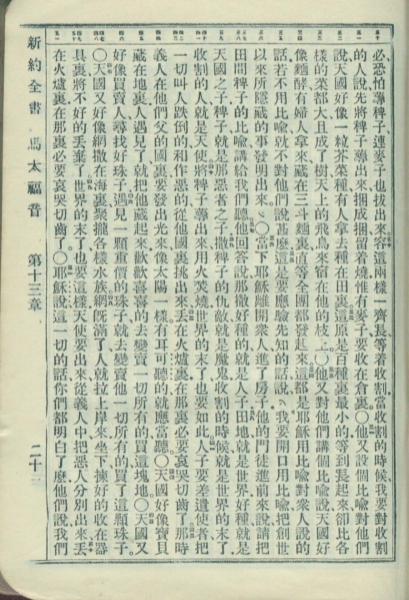 必恐怕薅稗子連麥子也拔出來容這兩樣一齊長等着收割當收割的時候我要對收割
的人說先將稗子薅出來捆成捆留着燒惟有麥子要收在倉裏〇他又設個比喻對他們
說天國好像一粒芥菜種有人拿去種在田裏這原是百種裏最小的等到長起來卻比各
樣的菜都大且成了樹天上的飛鳥來宿在他的枝上〇他又對他們講個比喻說天國好
像麵酵有婦人拿來藏在三斗麵裏直等全團都發起來這都是耶穌用比喻對衆人說的
話若不用比喻就不對他們說甚麼這是要應驗先知的話說我要開口用比喻把創世
以來所隱藏的事發明出來〇當下耶穌離開衆人進了房子他的門徒進前來說請把
田間稗子的比喻講給我們聽他回答說那撒好種的就是人子田地就是世界好種就是
天國之子稗子就是那惡者之子撒稗子的仇敵就是魔鬼收割的時候就是世界的末了
收割的人就是天使將稗子薅出來用火焚燒世界的末了也要如此人子要差遣使者把
一切叫人跌倒的和作惡的從他國裏挑出來丟在火爐裏在那裏必要哀哭切齒了那時
義人在他們父的國裏要發出光來像太陽一樣有耳可聽的就應當聽〇天國好像寶貝
藏在地裏人遇見了就把他藏起來歡歡喜喜的去變賣一切所有的買這塊地〇天國又
好像買賣人尋找好珠子遇見一顆重價的珠子就去變賣他一切所有的買了這顆珠子
〇天國又好像網撒在海裏聚攏各樣水族網旣滿了人就拉上岸來坐下揀好的收在器
具裏將不好的丟棄了世界的末了也要這樣天使要出來從義人中把惡人分別出來丟
在火爐裏在那裏必要哀哭切齒了〇耶穌說這一切的話你們都明白了麼他們說我們
新約全書 馬太福音 第十三章 二十